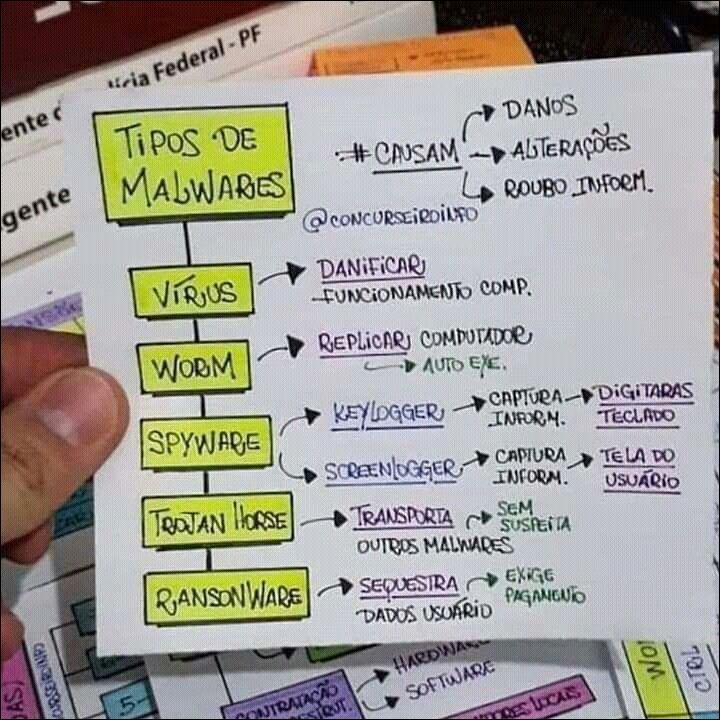 lícia Federal - PF
ente d
gente
TIPOS DE
MALWARES
# CAUSAM
DANOS
ALTERAÇÕES
ROUBO INFORM.
@CONCURSEIROINFO
VÍRUS
DANIFICAR
FUNCIONAMENTO COMP.
WORM
REPLICAR COMPUTADOR
AUTO EXE.
SPYWARE
KEYLOGGER
CAPTURA
INFORM.
DIGITARAS
TECLADO
SCREENLOGGER
CAPTURA
INFORM.
TELA DO
USUÁRIO
TROJAN HORSE
TRANSPORTA
OUTROS MALWARES
SEM
SUSPEITA
RANSONWARE
SEQUESTRA
DADOS USUÁRIO
EXIGE
PAGAMENTO
HARDWARE
SOFTWARE
CONTRATAÇÃO
ESTRUT.
ORES LOCAIS
5-
AS)
WOR
CTRL